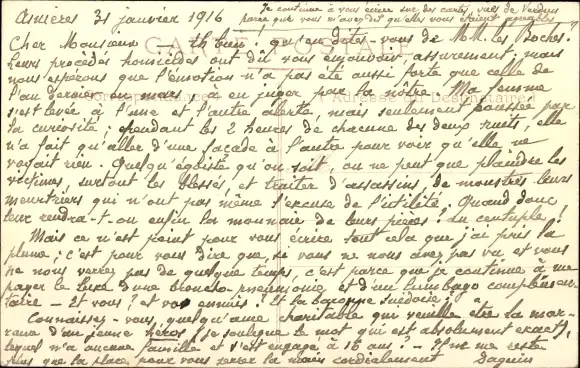 Asnières 31 janvier 1916
Je continue à vous écrire sur des cartes, vues de Verdun
parce que vous m'avez dit qu'elles vous étaient agréables
CARTE POSTALE
Cher Monsieur — Eh bien, qu'en dites-vous de M.M. les Boches.
Leurs procédés homicides ont dû vous émouvoir, assurément, mais
nous espérons que l'émotion n'a pas été aussi forte que celle de
l'an dernier en mars — à en juger par la nôtre. Ma femme
s'est levée à l'une et l'autre alerte, mais seulement poussée par
la curiosité; pendant les 2 heures de chacune des deux nuits, elle
n'a fait qu'aller d'une façade à l'autre pour voir qu'elle ne
voyait rien. Quelqu'égoïste qu'on soit, on ne peut que plaindre les
victimes, surtout les blessés, et traiter d'assassins, de monstres leurs
meurtriers qui n'ont pas même l'excuse de l'utilité. Quand donc,
leur rendra-t-on enfin la monnaie de leurs pièces? Au centuple!
Mais ce n'est point pour vous écrire tout cela que j'ai pris la
plume; c'est pour vous dire que, si vous ne nous avez pas vu et vous
ne nous verrez pas de quelque temps, c'est parce que je continue à me
payer le luxe d'une broncho-pneumonie et d'un lumbago complémen-
taire — Et vous? et vos ennuis? Et la baronne suédoise?
Connaissez-vous, quelqu'âme charitable qui veuille être la mar-
raine d'un jeune héros (je souligne le mot qui est absolument exact),
lequel n'a aucune famille et s'est engagé à 16 ans? — Il ne me reste
plus que la place pour vous serrer la main cordialement Daguin